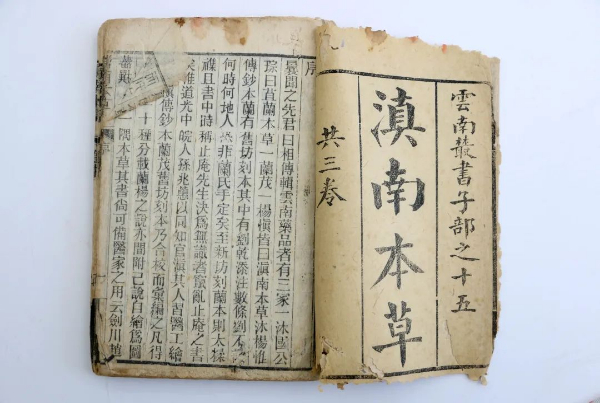 雲南叢書子部之十五
滇南本草
共三卷
序
曩聞之先君
曰相傳輯雲南藥品者有三家一沐國公
琮曰苴蘭本草一蘭茂一楊慎皆曰滇南本草沐楊惟
傳鈔本蘭有舊坊刻本其中有劉乾添注數條劉不
何時何地人恐非蘭氏手定矣至新坊刻蘭本則太樑
雜且書中時稱止庵先生決為無識者竄亂止庵之書
矣惟道光中皖人孫兆蕙以同知官滇其人習醫工繪
滇傳鈔本蘭茂舊坊刻本乃合校而彙編之凡得
十種分載蘭楊之說亦間附己說自繪為圖
隅本草其書尚可備醫家之用云劍川趙